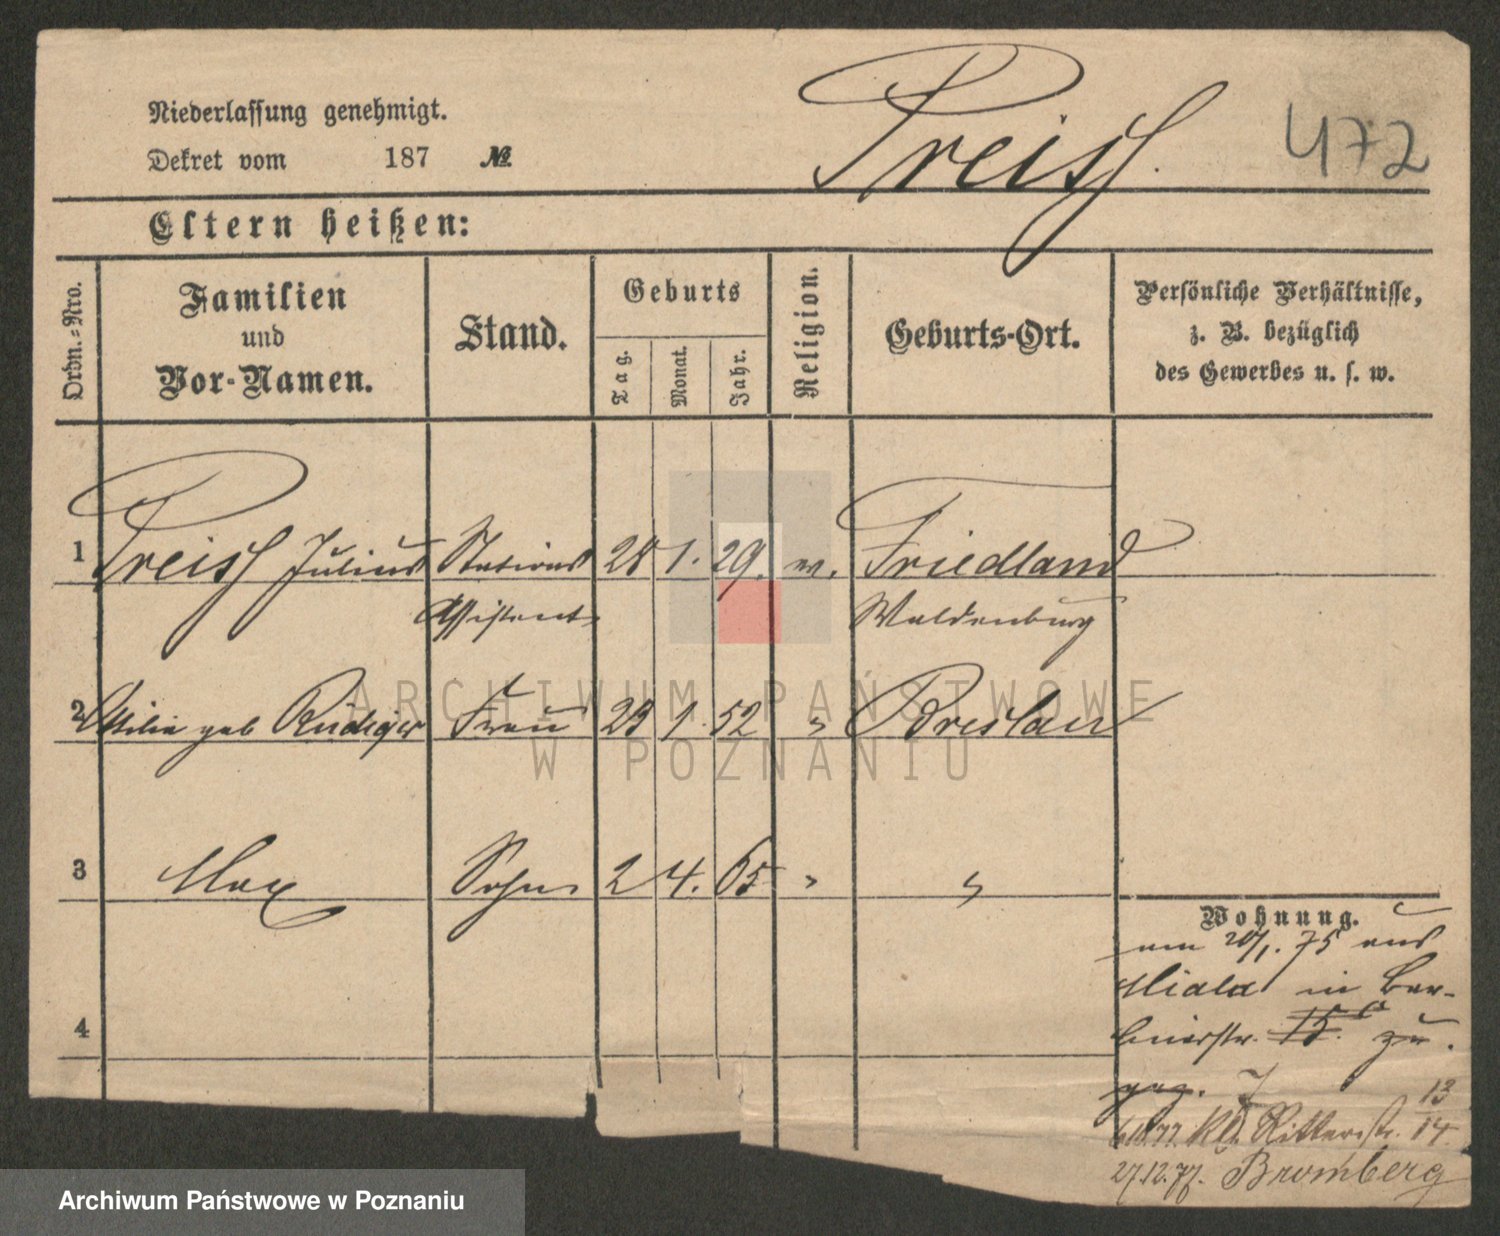 Niederlassung genehmigt.
Dekret vom 187 №
Preiss.
472
Eltern heißen:
Ordn.-Nro.
Familien
und
Vor-Namen.
Stand.
Geburts
Tag.
Monat.
Jahr.
Religion.
Geburts-Ort.
Persönliche Verhältnisse,
z. B. bezüglich
des Gewerbes u. s. w.
1 Preiss Julius Stations 28 1. 29. ev. Friedland
Assistent Waldenburg
2 Ottilie geb Rüdiger Frau 23 1. 52 " Breslau
3 Max Sohn 2 4. 65 " "
4
Wohnung.
am 20/1. 75 aus
Miala in Ber-
linerstr. 15 c zu.
gez. 7
77. Kl. Ritterstr. 13 14
27.12.77. Bromberg
ARCHIWUM PAŃSTWOWE
W POZNANIU
Archiwum Państwowe w Poznaniu